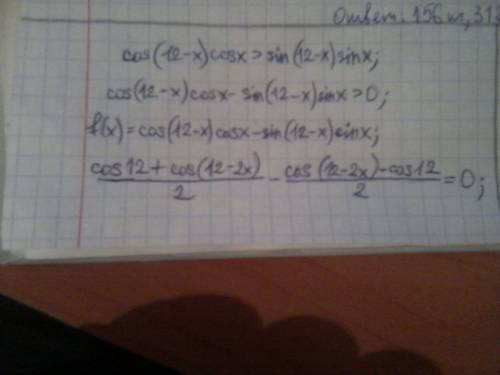 Ответ: 156 кг, 31
cos(12-x)cosx>sin(12-x)sinx;
cos(12-x)cosx-sin(12-x)sinx>0;
f(x)=cos(12-x)cosx-sin(12-x)sinx;
(cos12+cos(12-2x))/2 - (cos(12-2x)-cos12)/2 = 0;